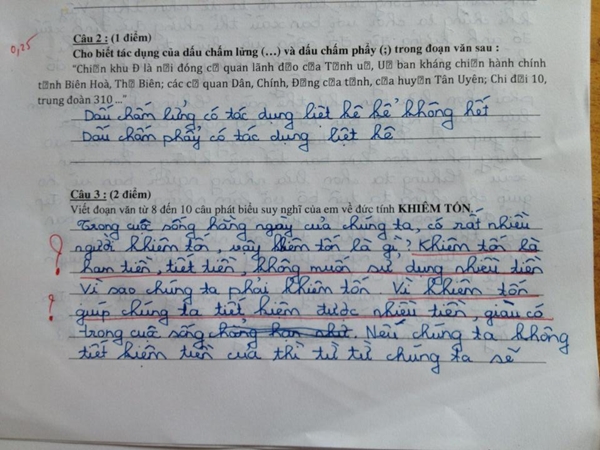 0,25
Câu 2 : (1 điểm)
Cho biết tác dụng của dấu chấm lửng (…) và dấu chấm phẩy (;) trong đoạn văn sau :
"Chi�n khu Đ là n�i đóng c� quan lãnh d�o của T�nh u�, U� ban kháng chi�n hành chính
t�nh Biên Hoà, Th� Biên; các c� quan Dân, Chính, Đ�ng c�a t�nh, c�a huy�n Tân Uyên; Chi đ�i 10,
trung đoàn 310 ..."
Dấu chấm lửng có tác dụng liệt kê kể không hết
Dấu chấm phẩy có tác dụng liệt kê
Câu 3 : (2 điểm)
Viết đoạn văn từ 8 đến 10 câu phát biểu suy nghĩ của em về đức tính KHIÊM TỐN.
Trong cuộc sống hàng ngày của chúng ta, có rất nhiều
người khiêm tốn, vậy khêm tốn là gì? Khiêm tốn là
ham tiền, tiết tiền, không muốn sử dụng nhiều tiền
? Vì sao chúng ta phải khiêm tốn Vì khiêm tốn
? giúp chúng ta tiết kiệm được nhiều tiền, giàu có
trong cuộc sống chẳng hạn như. Nếu chúng ta không
tiết kiệm tiền của thì từ từ chúng ta sẽ